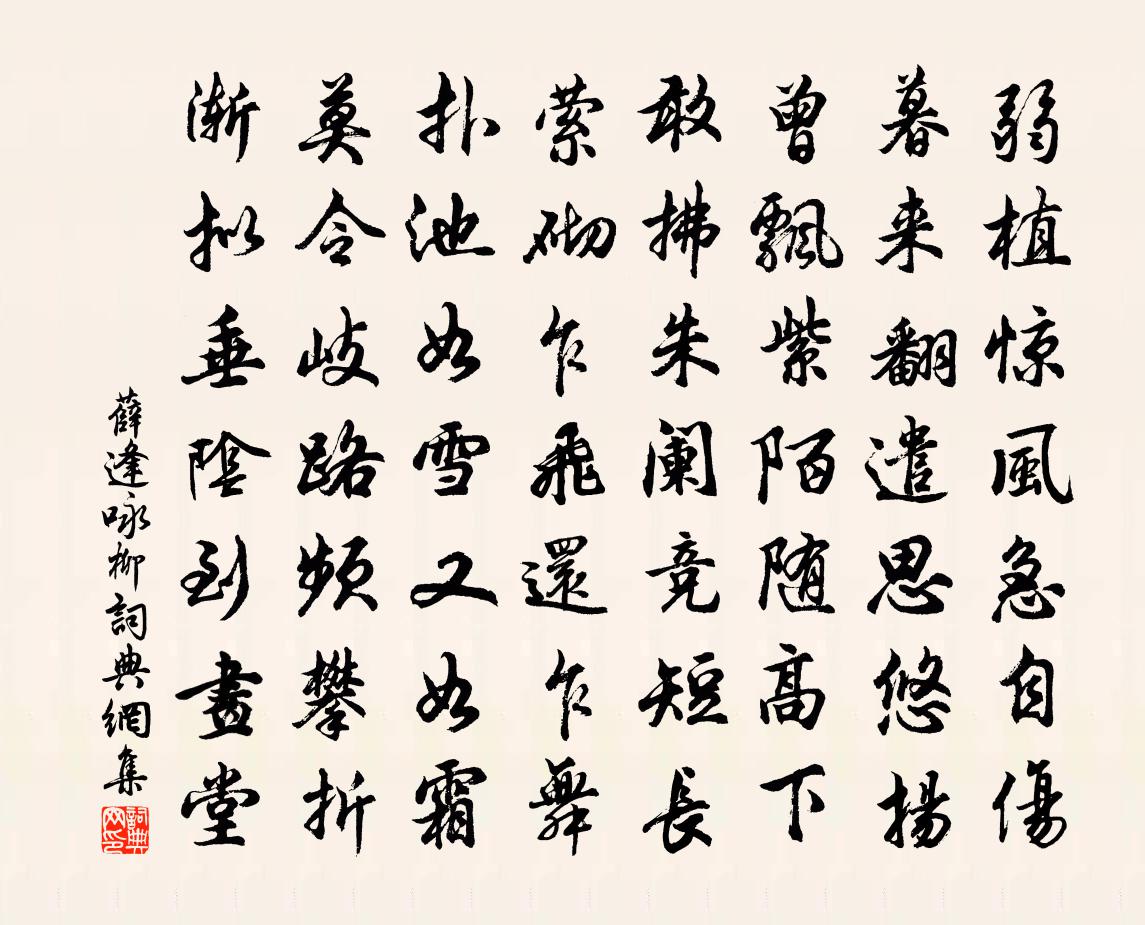 弱植惊風急自傷
暮来翻遣思悠揚
曾飄紫陌随高下
敢拂朱阑竞短長
萦砌乍飛還乍舞
扑池如雪又如霜
莫令岐路频攀折
渐拟垂陰到畫堂
薛逢咏柳詞典網集
詞典网印